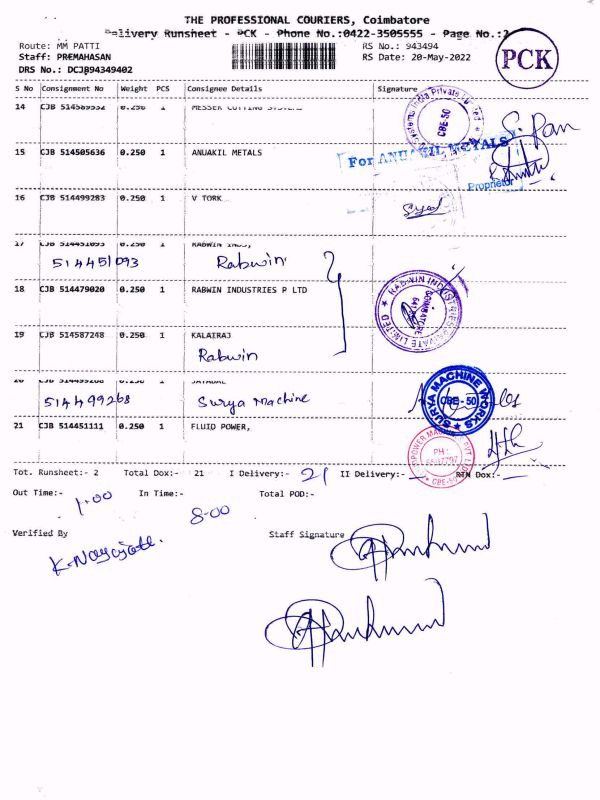 THE PROFESSIONAL COURIERS, Coimbatore
Delivery Runsheet - PCK - Phone No.:0422-3505555 - Page No.:2
Route: MM PATTI
RS No.: 943494
Staff: PREMAHASAN
RS Date: 20-May-2022
DRS No.: DCJB94349402
PCK
S No Consignment No Weight PCS Consignee Details Signature
14 CJB 514589552 0.250 1 MESSER CUTTING SYSTEMS
CBE-50
15 CJB 514505636 0.250 1 ANUAKIL METALS
For ANUAKIL METALS
Proprietor
16 CJB 514499283 0.250 1 V TORK
Syed
17 CJB 514451093 0.250 1 RABWIN INDS,
514451093 Rabwin
18 CJB 514479020 0.250 1 RABWIN INDUSTRIES P LTD
RABWIN INDUSTRIES PRIVATE LIMITED
COIMBATORE
19 CJB 514587248 0.250 1 KALAIRAJ
Rabwin
20 CJB 514499268 0.250 1
514499268 Surya Machine
SURYA MACHINE WORKS
CBE-50
21 CJB 514451111 0.250 1 FLUID POWER,
PH:
CBE-50
Tot. Runsheet:- 2 Total Dox:- 21 I Delivery:- 21 II Delivery:- RTN Dox:-
Out Time:- 1.00 In Time:- 8.00 Total POD:-
Verified By Staff Signature